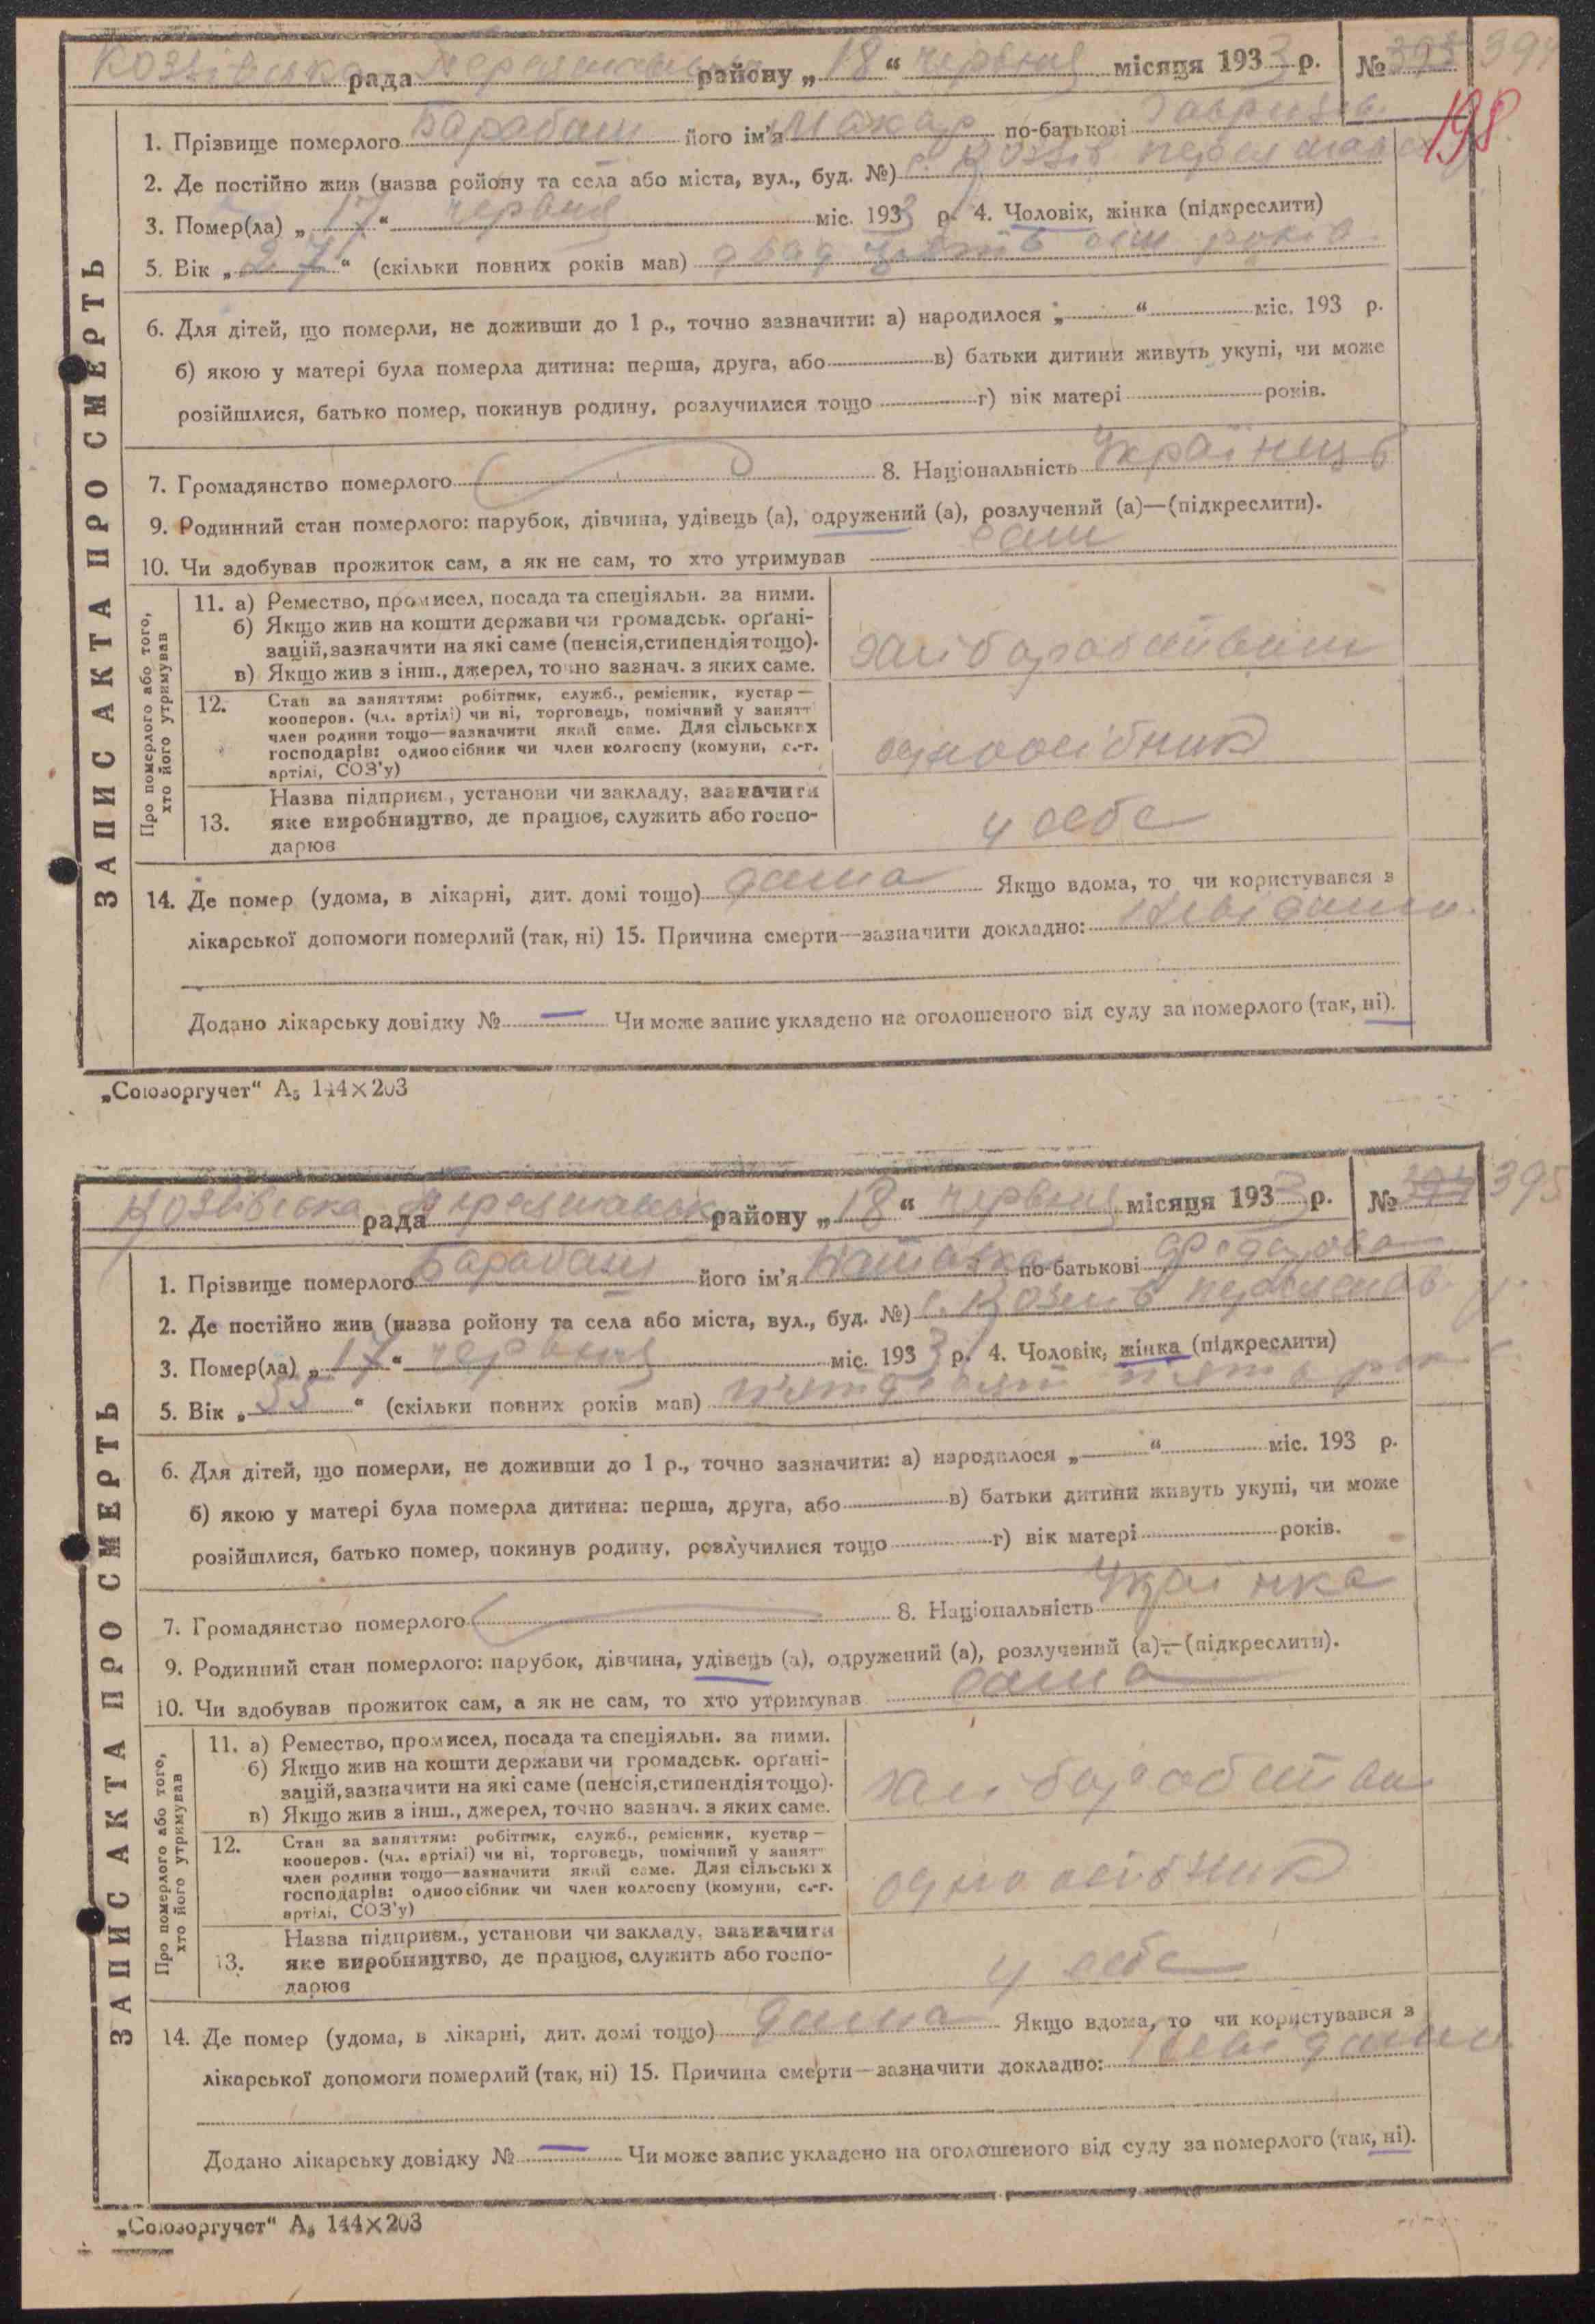 Козлівська рада Переяславськ району „18“ червня місяця 1933 р. № 393 394
198
1. Прізвище померлого Барабаш його ім'я Макар по-батькові Гаврилів
2. Де постійно жив (назва ройону та села або міста, вул., буд. №) с. Козлів Переяславськ
3. Помер(ла) „17“ червня міс. 1933 р. 4. Чоловік, жінка (підкреслити)
5. Вік „27“ (скільки повних років мав) двадцять сім років
6. Для дітей, що померли, не доживши до 1 р., точно зазначити: а) народилося „ “ міс. 193 р.
б) якою у матері була померла дитина: перша, друга, або в) батьки дитини живуть укупі, чи може
розійшлися, батько помер, покинув родину, розлучилися тощо г) вік матері років.
7. Громадянство померлого 8. Національність Українець
9. Родинний стан померлого: парубок, дівчина, удівець (а), одружений (а), розлучений (а)—(підкреслити).
10. Чи здобував прожиток сам, а як не сам, то хто утримував сам
ЗАПИС АКТА ПРО СМЕРТЬ
Про померлого або того, хто його утримував
11. а) Ремество, промисел, посада та спеціяльн. за ними.
б) Якщо жив на кошти держави чи громадськ. орґані-
зацій, зазначити на які саме (пенсія, стипендія тощо).
в) Якщо жив з інш., джерел, точно зазнач. з яких саме.
12. Стан за заняттям: робітник, служб., ремісник, кустар—
кооперов. (чл. артілі) чи ні, торговець, помічний у занятт
член родини тощо—зазначити який саме. Для сільських
господарів: одноосібник чи член колгоспу (комуни, с.-г.
артілі, СОЗ'у)
одноосібник
Назва підприєм., установи чи закладу, зазначити
13. яке виробництво, де працює, служить або госпо-
дарює
у себе
14. Де помер (удома, в лікарні, дит. домі тощо) дома Якщо вдома, то чи користувався з
лікарської допомоги померлий (так, ні) 15. Причина смерти—зазначити докладно: Невідомо.
Додано лікарську довідку № — Чи може запис укладено на оголошеного від суду за померлого (так, ні).
„Союзоргучет“ А5 144×203
Козлівська рада Переяславськ району „18“ червня місяця 1933 р. № 394 395
1. Прізвище померлого Барабаш його ім'я по-батькові Федорова
2. Де постійно жив (назва ройону та села або міста, вул., буд. №) с. Козлів Переяслав
3. Помер(ла) „17“ червня міс. 1933 р. 4. Чоловік, жінка (підкреслити)
5. Вік „55“ (скільки повних років мав) пятдесят пять рок
6. Для дітей, що померли, не доживши до 1 р., точно зазначити: а) народилося „ “ міс. 193 р.
б) якою у матері була померла дитина: перша, друга, або в) батьки дитини живуть укупі, чи може
розійшлися, батько помер, покинув родину, розлучилися тощо г) вік матері років.
7. Громадянство померлого 8. Національність Українка
9. Родинний стан померлого: парубок, дівчина, удівець (а), одружений (а), розлучений (а)—(підкреслити).
10. Чи здобував прожиток сам, а як не сам, то хто утримував сама
ЗАПИС АКТА ПРО СМЕРТЬ
Про померлого або того, хто його утримував
11. а) Ремество, промисел, посада та спеціяльн. за ними.
б) Якщо жив на кошти держави чи громадськ. орґані-
зацій, зазначити на які саме (пенсія, стипендія тощо).
в) Якщо жив з інш., джерел, точно зазнач. з яких саме.
12. Стан за заняттям: робітник, служб., ремісник, кустар—
кооперов. (чл. артілі) чи ні, торговець, помічний у занят
член родини тощо—зазначити який саме. Для сільських
господарів: одноосібник чи член колгоспу (комуни, с.-г.
артілі, СОЗ'у)
одноосібник
Назва підприєм., установи чи закладу, зазначити
13. яке виробництво, де працює, служить або госпо-
дарює
у себе
14. Де помер (удома, в лікарні, дит. домі тощо) дома Якщо вдома, то чи користувався з
лікарської допомоги померлий (так, ні) 15. Причина смерти—зазначити докладно: Невідомо
Додано лікарську довідку № — Чи може запис укладено на оголошеного від суду за померлого (так, ні).
„Союзоргучет“ А5 144×203